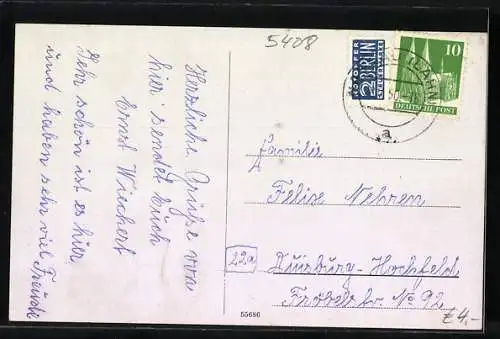 5408
NOTOPFER
2 BERLIN
STEUERMARKE
10
DEUTSCHE POST
(LAHN)
a
Herzliche Grüße von
hier sendet Euch
Ernst Wiechert
Sehr schön ist es hier
und haben sehr viel Freude
Familie
Felix Nehren
22a
Duisburg-Hochfeld
Fröbelstr. No 92
55686
€4,-